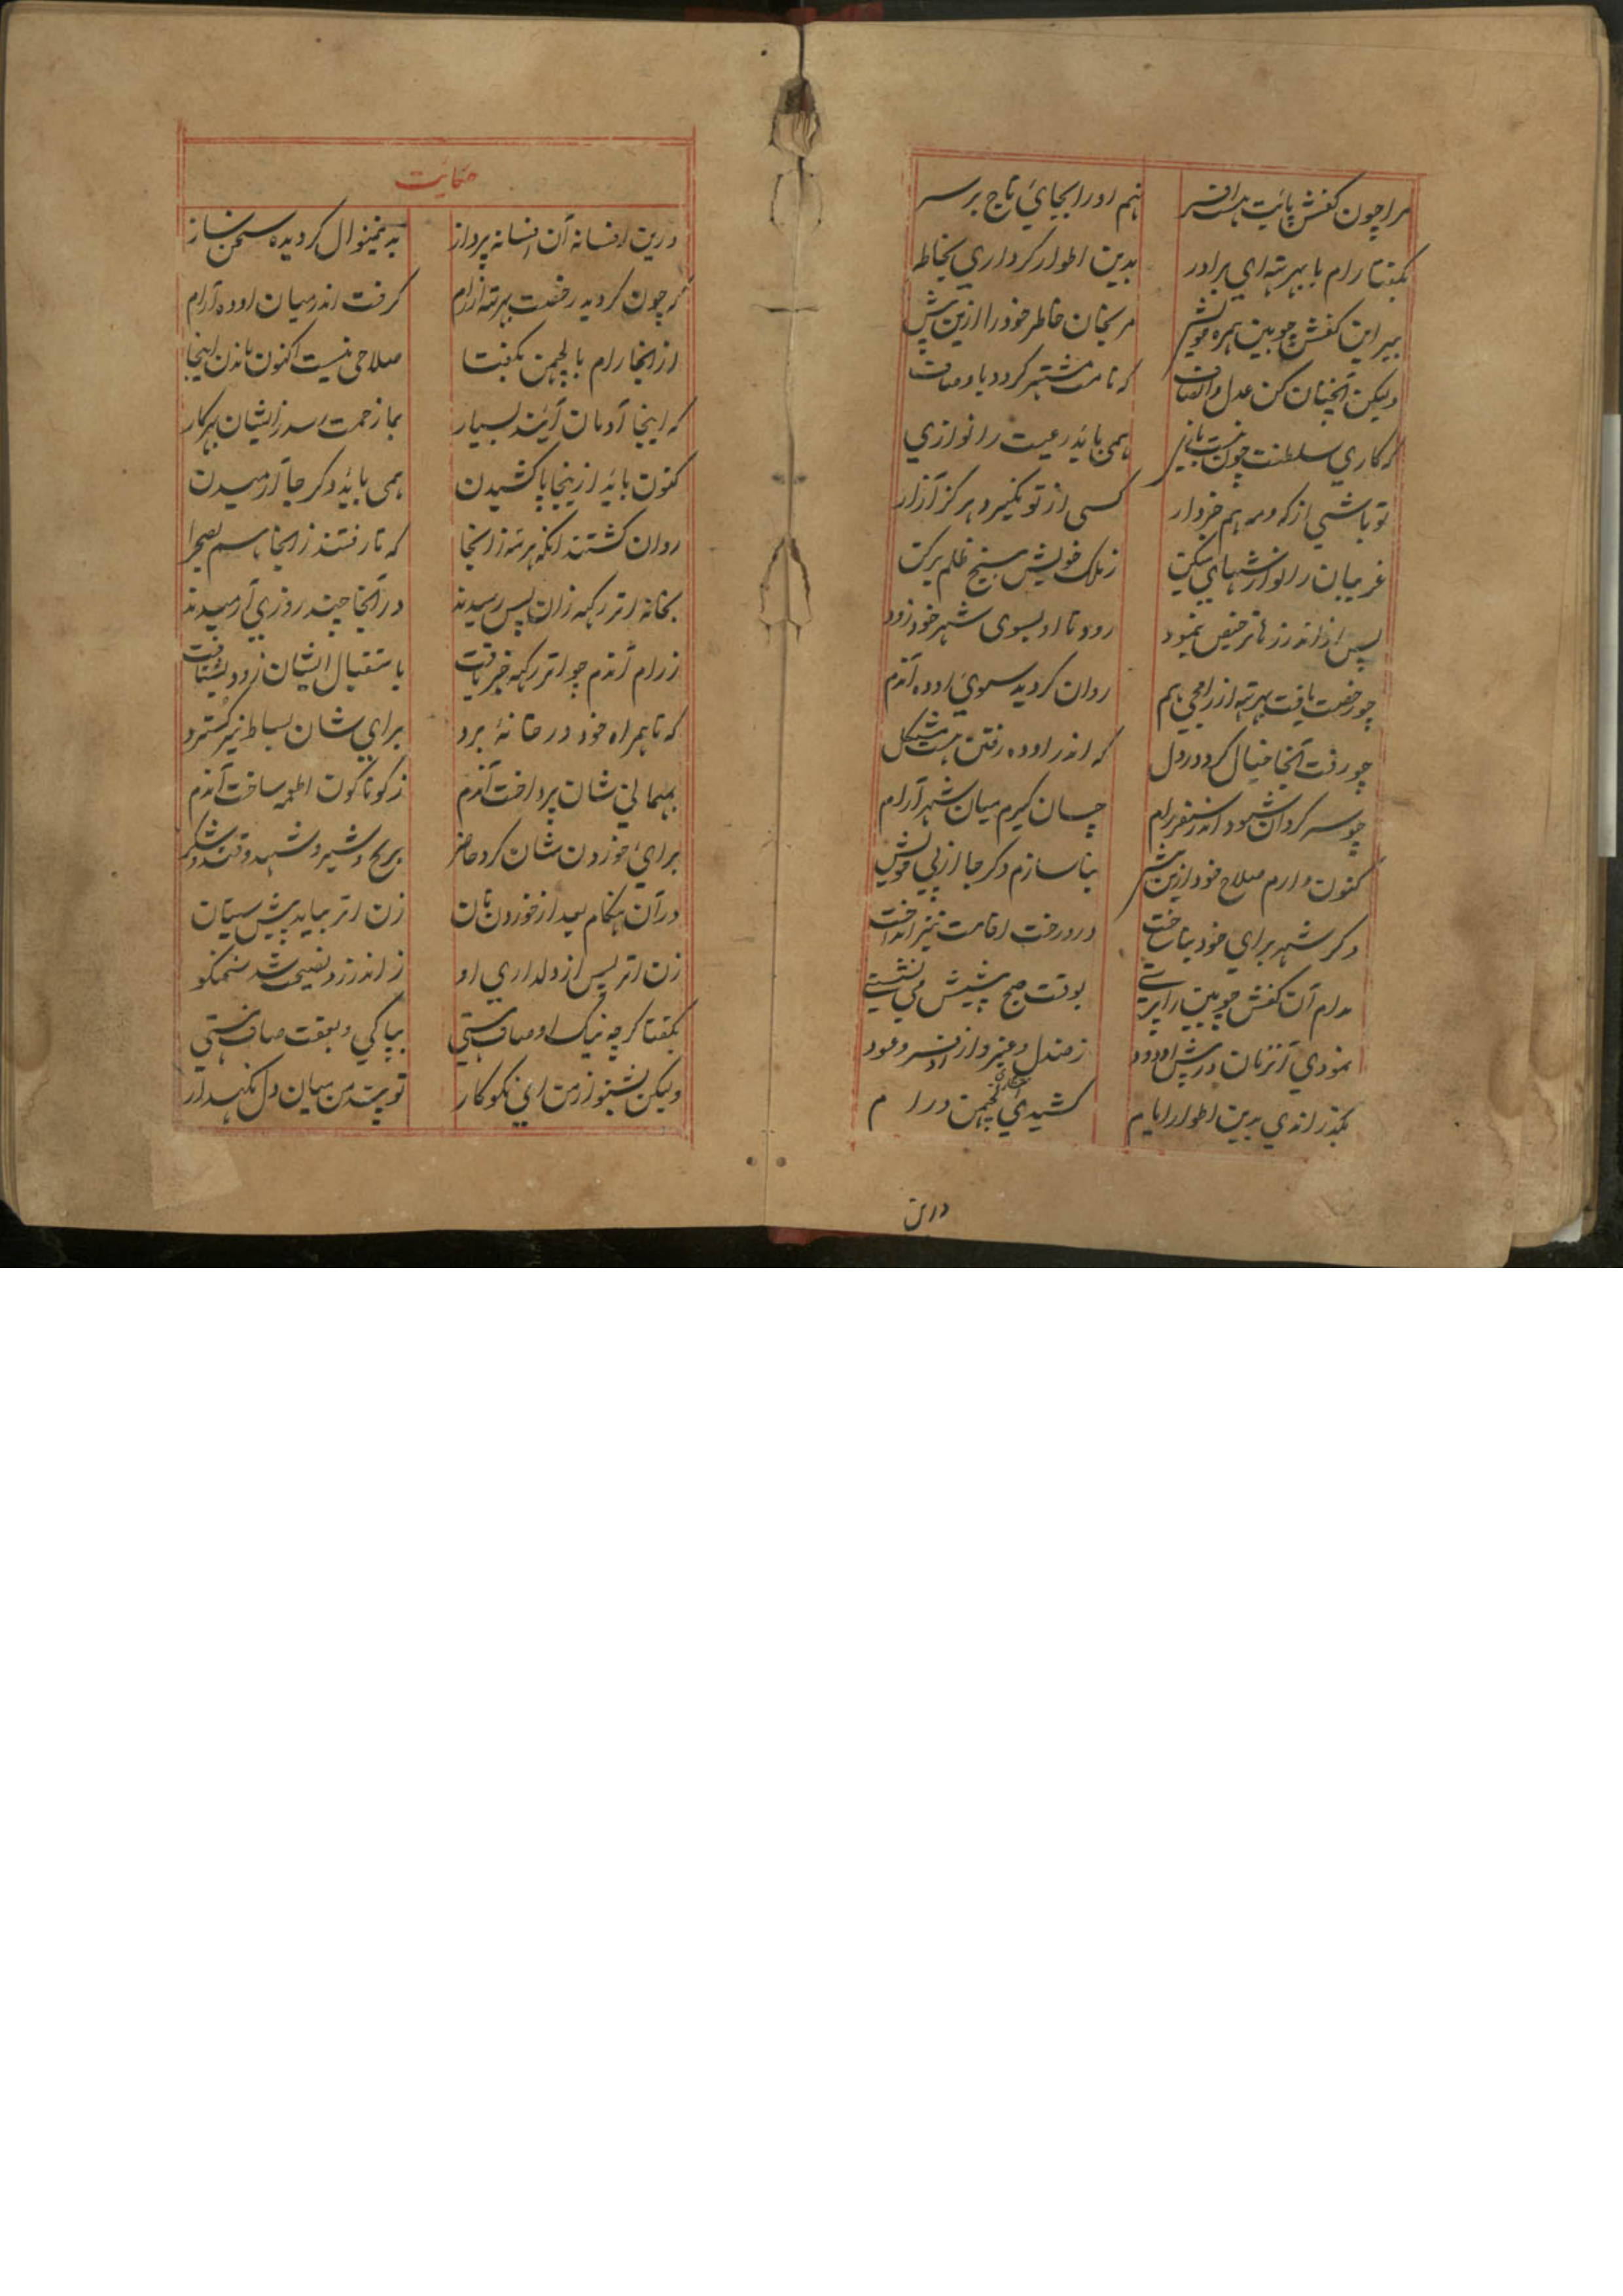 مرا چون کفش پائیت هست افسر نهم او را بجائ تاج بر سر
بگفتا رام با بهرته ای برادر بدین اطوار کرداری بخاطر
ببر این کفش چوبین همره خویش مرنجان خاطر خود را ازین پیش
ولیکن آنچنان کن عدل و انصاف که نامت مشتهر گردد باوصاف
که کاری سلطنت چون نیست بازی همی باید رعیت را نوازی
تو باشی از که و مه هم خبردار کسی از تو نگیرد هرگز آزار
غریبان را نوازشهای میکن ز ملک خویش بیخ ظلم برکن
پس از اندرزها ترخیص بنمود رود تا او بسوی شهر خود زود
چو رخصت یافت بهرته از رامجی هم روان گردید سوی اوده آندم
چو رفت آنجا خیال کرد در دل که اندر اوده رفتن هست مشکل
چو سرگردان شود اندر سفر رام چسان گیرم میان شهر آرام
کنون دارم صلاح خود ازین بیش بنا سازم دگر جا از پی خویش
دگر شهر برای خود بنا ساخت درو رخت اقامت نیز انداخت
مدام آن کفش چوبین را پرستی بوقت صبح پیشش می نشستی
نمودی آنزمان در پیش او دود ز صندل و عنبر و از
بگذراندی بدین اطوار ایام کشیدی انتظار لچهمن و رام
درین
حکایت
درین افسانه آن افسانه پرداز به نمینوال گردیده سخن ساز
که چون گردید رخصت بهرته از رام گرفت اندر میان اوده آرام
از آنجا رام با لچهمن بگفتا صلاحی نیست اکنون ماندن اینجا
که اینجا آدمان آیند بسیار بما زحمت رسد زایشان بهر کار
کنون باید ازینجا پا کشیدن همی باید دگر جا آرمیدن
روان گشتند آنگه هر سه زانجا که تا رفتند زانجا هم بصحرا
بخانه اتر رکهه زان پس رسیدند در آنجا چند روزی آرمیدند
ز رام آندم چو اتر رکهه خبر یافت باستقبال ایشان زود بشتافت
که تا همراه خود در خانه برد برای شان بساط نیز گسترد
بمهمانی شان پرداخت آندم ز گوناگون اطعمه ساخت آندم
برائ خوردن شان کرد حاضر برنج و شیر و شهد و قند و شکر
در آن هنگام بعد از خوردن نان زن اتر بیامد پیش سیتان
زن اتر پس از دلداری او ز اندرز و نصیحت شد سخنگو
بگفتا گرچه نیک اوصاف هستی بپاکی و بعفت صاف هستی
ولیکن بشنو از من ای نکوکار تو پند من میان دل نگهدار